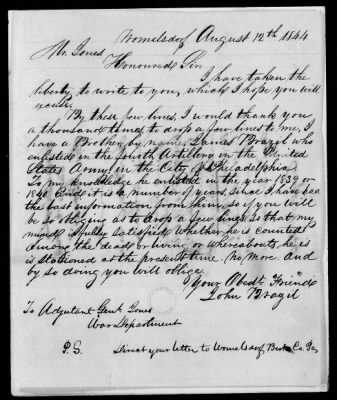 Womelsdorf August 12th 1844
Mr. Jones
Honoured Sir
I have taken the
liberty to write to you, which I hope you will
excuse.
By these few lines, I would thank you
a thousand times to drop a few lines to me, I
have a Brother, by name, James Brazil who
enlisted in the fourth Artillery in the United
States Army, in the City of Philadelphia
To my knowledge he enlisted in the year 1839 or
1840. And it is a number of years, since I have had
the last information from him, so if you will
be so obliging as to drop a few lines, so that my
mind is fully satisfied Whether he is counted
among the dead or living or whereabouts he is
is stationed at the present time. No more And
by so doing you will oblige
Your Obedt Friend
John Brazil
To Adjutant Genl. Jones
War Department
P.S. Direct your letter to Womelsdorf Berks Co. Pa